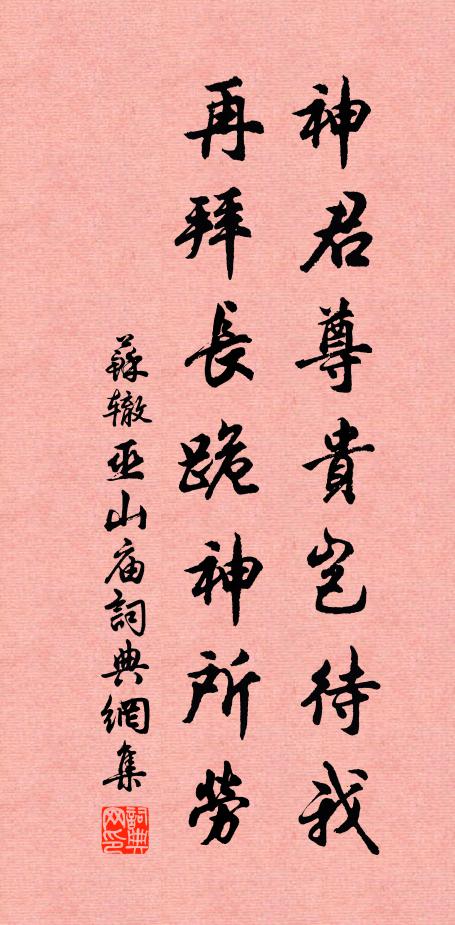 神君尊貴豈待我
再拜長跪神所勞
蘇辙巫山庙詞典網集
詞典網印